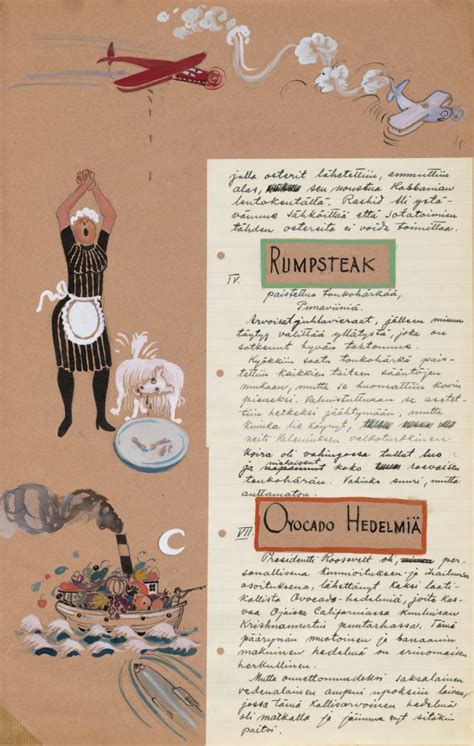 jolla osterit lähetettiin, ammuttiin
alas, sen noustua Kabbanian
lentokentältä. Rashid Ali ystä-
vämme sähköittää että sotatoimien
tähden ostereita ei voida toimittaa.
RUMPSTEAK
IV.
paistettua toukohärkää,
Punaviiniä.
Arvoisat juhlavieraat, jälleen minun
täytyy valittaa yllätystä, joka on
sotkenut hyvän tahtomme.
Kyökkiin saatu toukohärkä pais-
tettiin kaikkien taiteen sääntöjen
mukaan, mutta se huomattiin kovin
pieneksi. Valmistuttuaan se asetet-
tiin hetkeksi jäähtymään, mutta
kuinka lie käynyt,
neiti valkoturkkinen
koira oli vahingossa tullut luo
ja koko rasvaisen
toukohärän. Vahinko suuri, mutta
auttamaton.
OVOCADO HEDELMIÄ
VII.
Presidentti Roosevelt oli per-
soonallisena kunnioituksen ja ihailunsa
osoituksena, lähettänyt kaksi laati-
kallista Ovocado-hedelmiä, joita kas-
vaa Ojaissa Californiassa kuuluisan
Krishnamurtin puutarhassa. Tämä
päärynän muotoinen ja banaanin
makuinen hedelmä on erinomaisen
herkullinen.
Mutta onnettomuudeksi saksalainen
vedenalainen ampui upoksiin laivan,
jossa tämä kallisarvoinen hedelmä
oli matkalla ja jäimme nyt sitäkin
paitsi.